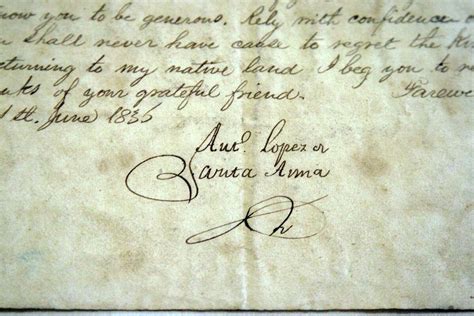 now you to be generous. Rely with confidence
shall never have cause to regret the
turning to my native land I beg you to
aks of your grateful friend. Farewe
St. June 1836
Anto. Lopez de
Santa Anna